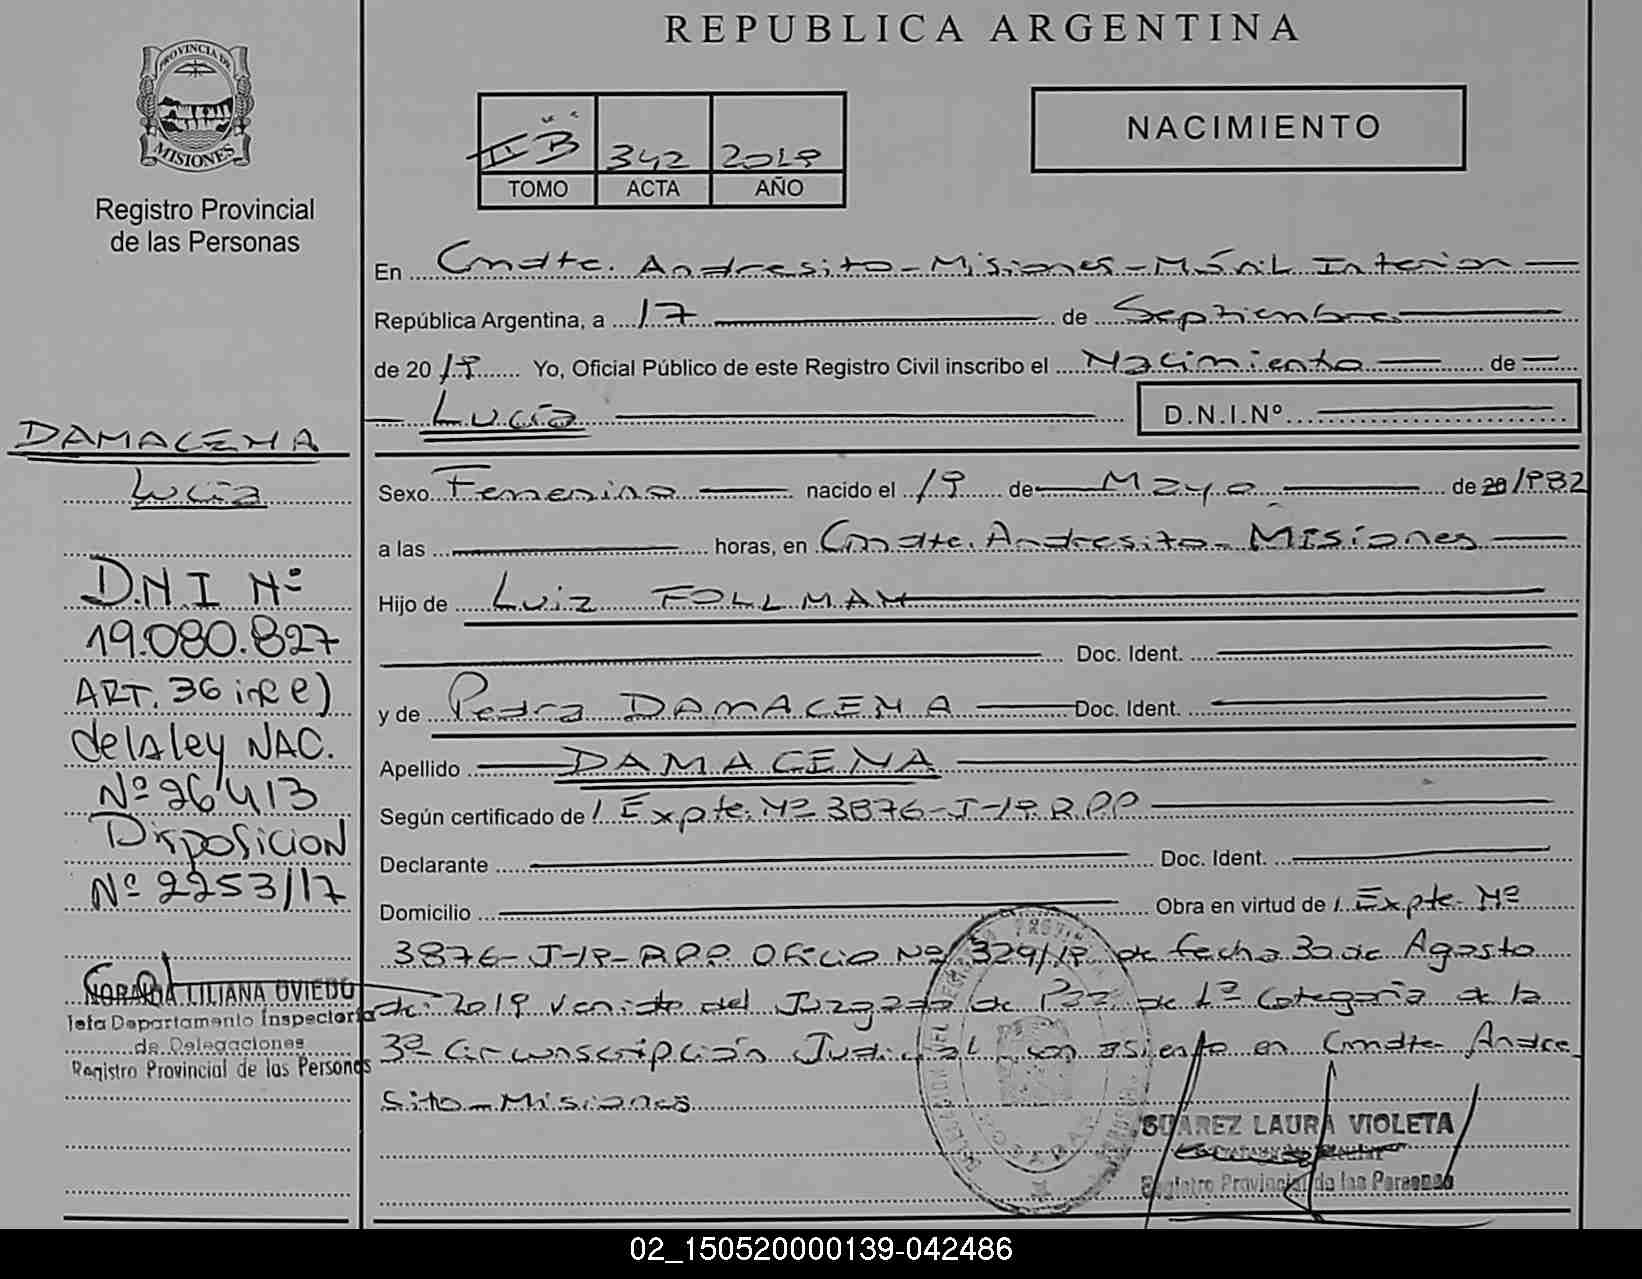 REPUBLICA ARGENTINA
PROVINCIA DE
MISIONES
Registro Provincial
de las Personas
II "B" 342 2019
TOMO ACTA AÑO
NACIMIENTO
En Cmdte. Andresito - Misiones - Móvil Interior
República Argentina, a 17 de Septiembre
de 2019 Yo, Oficial Público de este Registro Civil inscribo el Nacimiento de
Lucía
D.N.I.Nº
Sexo Femenino nacido el 19 de Mayo de 20/1982
a las horas, en Cmdte. Andresito - Misiones
Hijo de Luiz FOLLMAN
Doc. Ident.
y de Pedra DAMACENA Doc. Ident.
Apellido DAMACENA
Según certificado de / Expte. Nº 3876-J-19-R.P.P
Declarante Doc. Ident.
Domicilio Obra en virtud de / Expte. Nº
3876-J-19-R.P.P. Oficio Nº 329/19 de fecha 30 de Agosto
de 2019 venido del Juzgado de Paz de 1ª Categoría de la
3ª Circunscripción Judicial con asiento en Cmdte. Andre
sito - Misiones
SUAREZ LAURA VIOLETA
Registro Provincial de las Personas
DAMACENA
Lucía
D.N.I Nº
19.080.827
ART. 36 inc e)
de la ley NAC.
Nº 26413
Disposicion
Nº 2253/17
NORALIA LILIANA OVIEDO
Jefa Departamento Inspectoria
de Delegaciones
Registro Provincial de las Personas
02_150520000139-042486